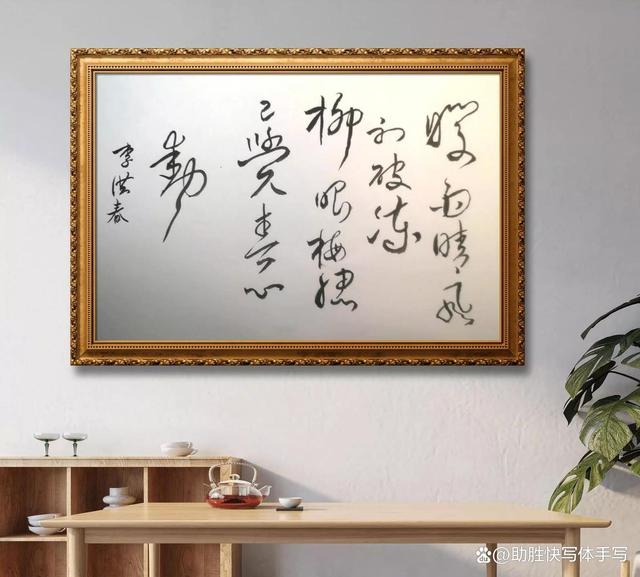 暖雨晴风
初破冻
柳眼梅腮
已觉春心
动
李洪春
@助胜快写体手写